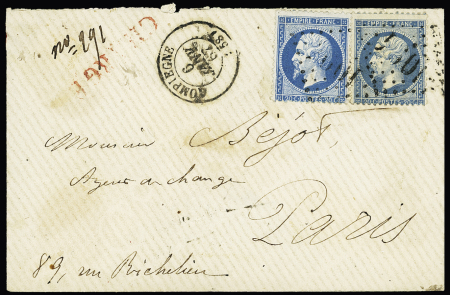 no. 291
CHARGÉ
COMPIEGNE
6
JANV.
EMPIRE FRANC.
EMPIRE FRANC.
Monsieur Béjot,
Agent de change
Paris
89, rue Richelieu